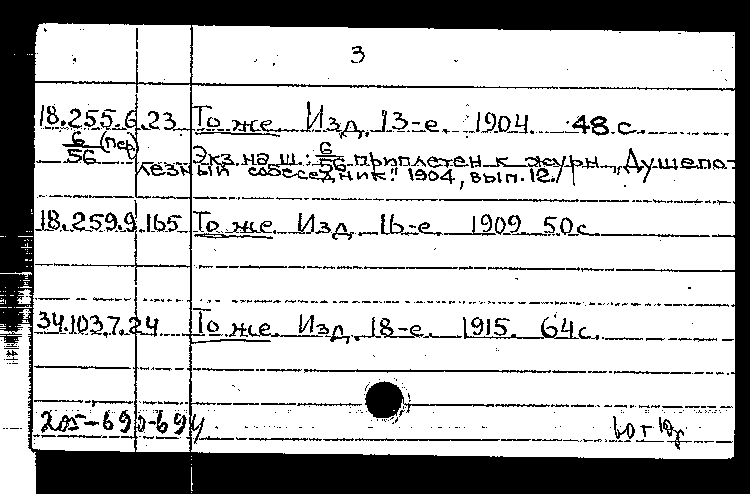 3
18.255.6.23 То же. Изд. 13-е. 1904. 48 с.
6/56 (Пер) Экз. на ш.: 6/56 приплетен к журн. „Душепо-
лезный собеседник." 1904, вып. 12./
18.259.9.165 То же. Изд. 16-е. 1909 50 с.
34.103.7.24 То же. Изд. 18-е. 1915. 64 с.
205-690-694